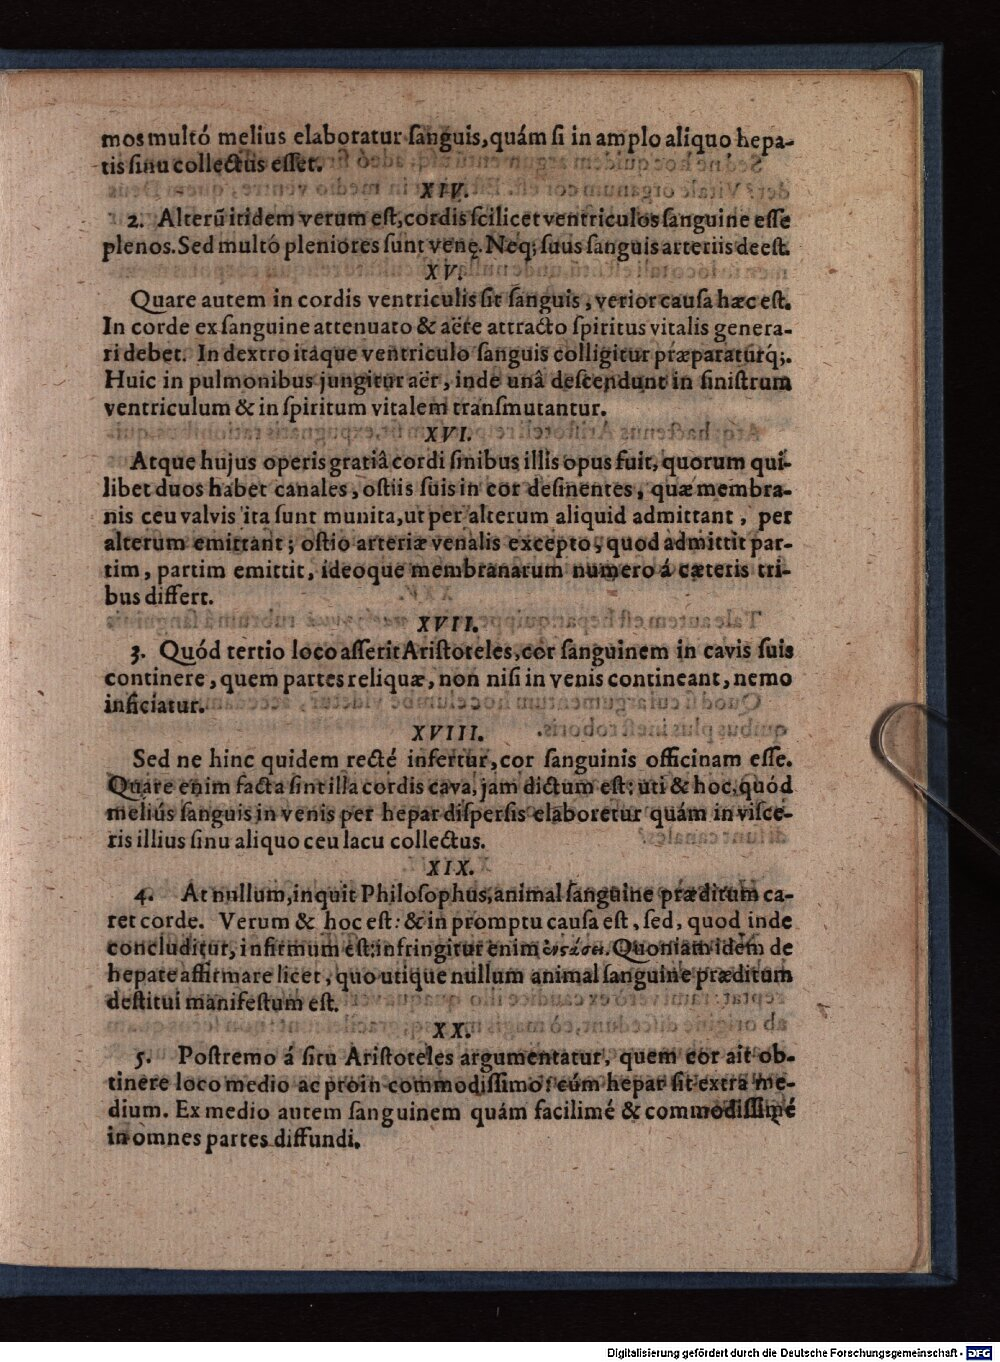 mos multó melius elaboratur sanguis, quám si in amplo aliquo hepa-
tis sinu collectus esset.
XIV.
2. Alterũ itidem verum est, cordis scilicet ventriculos sanguine esse
plenos. Sed multó pleniores sunt venę. Neq; suus sanguis arteriis deest.
XV.
Quare autem in cordis ventriculis sit sanguis, verior causa hæc est.
In corde ex sanguine attenuato & aëre attracto spiritus vitalis genera-
ri debet. In dextro itáque ventriculo sanguis colligitur præparaturq́;.
Huic in pulmonibus jungitur aër, inde unâ descendunt in sinistrum
ventriculum & in spiritum vitalem transmutantur.
XVI.
Atque hujus operis gratiâ cordi sinibus illis opus fuit, quorum qui-
libet duos habet canales, ostiis suis in cor desinentes, quæ membra-
nis ceu valvis ita sunt munita, ut per alterum aliquid admittant, per
alterum emittant; ostio arteriæ venalis excepto, quod admittit par-
tim, partim emittit, ideoque membranarum numero á cæteris tri-
bus differt.
XVII.
3. Quód tertio loco asserit Aristoteles, cor sanguinem in cavis suis
continere, quem partes reliquæ, non nisi in venis contineant, nemo
inficiatur.
XVIII.
Sed ne hinc quidem recté infertur, cor sanguinis officinam esse.
Quare enim facta sint illa cordis cava, jam dictum est: uti & hoc, quód
meliús sanguis in venis per hepar dispersis elaboretur quám in visce-
ris illius sinu aliquo ceu lacu collectus.
XIX.
4. At nullum, inquit Philosophus, animal sanguine præditum ca-
ret corde. Verum & hoc est: & in promptu causa est, sed, quod inde
concluditur, infirmum est: infringitur enim Quoniam idem de
hepate affirmare licet, quo utique nullum animal sanguine præditum
destitui manifestum est.
XX.
5. Postremo á situ Aristoteles argumentatur, quem cor ait ob-
tinere loco medio ac proin commodissimo: cúm hepar sit extra me-
dium. Ex medio autem sanguinem quám facilimé & commodissimé
in omnes partes diffundi.
Digitalisierung gefördert durch die Deutsche Forschungsgemeinschaft - DFG